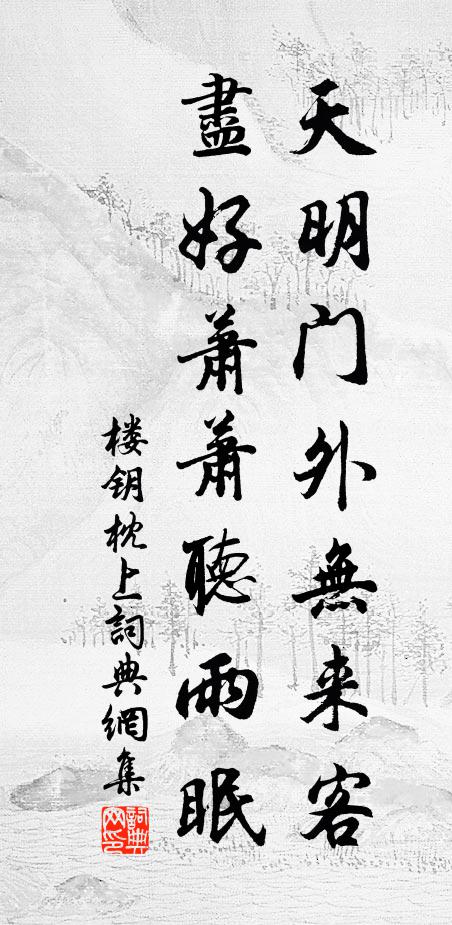 天明门外無来客
盡好蕭蕭聽雨眠
楼钥枕上詞典網集
詞典网印